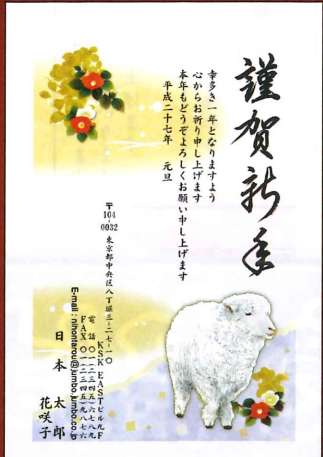 謹賀新年
幸多き一年となりますよう
心からお祈り申し上げます
本年もどうぞよろしくお願い申し上げます
平成二十七年 元旦
〒104-0032 東京都中央区八丁堀三-二七-一〇
KSK EASTビル九F
電話〇一(二三四五)六七八九
FAX〇一(二三四五)九八七六
E-mail : nihontarou@jumbo.jumbo.co.jp
日本 太郎
花咲子